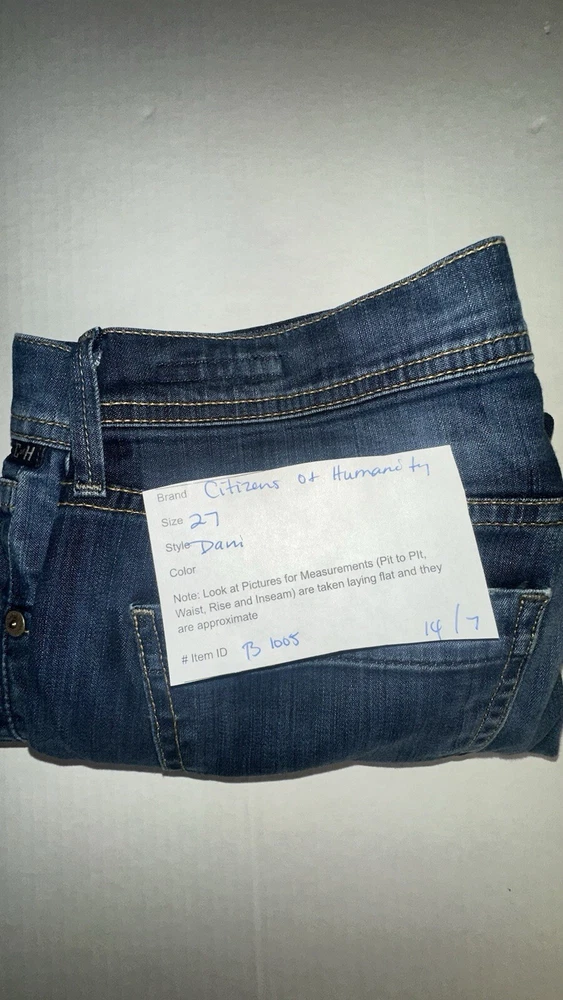 C
H
Brand Citizens of Humanity
Size 27
Style Dani
Color
Note: Look at Pictures for Measurements (Pit to PIt,
Waist, Rise and Inseam) are taken laying flat and they
are approximate
# Item ID B 1005
14/7